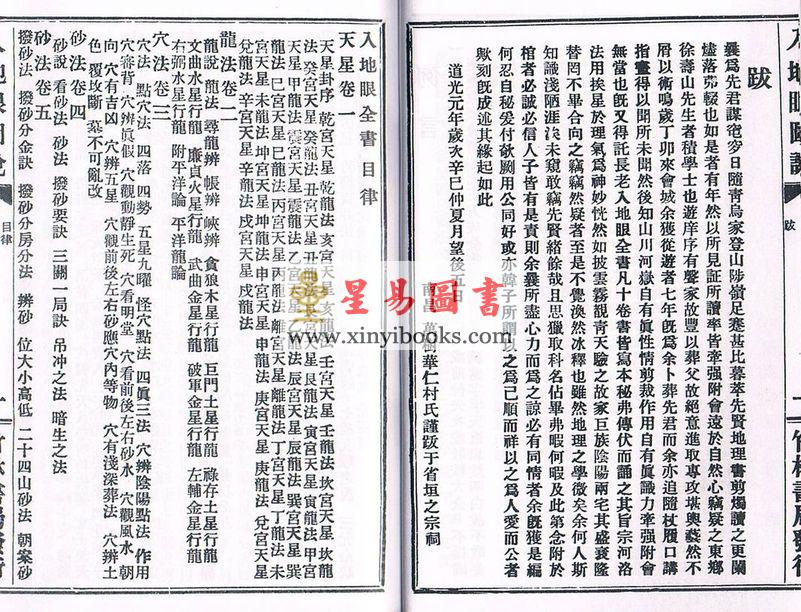 跋
曩爲先君謀窀穸日隨青烏家登山陟嶺足蹇甚比暮萃先賢地理書剪燭讀之更闌
燼落弗輟也如是者有年然以所見証所讀率皆牽强附會遠於自然心竊疑之東鄉
徐壽山先生者積學士也遊庠序有聲家故豐以葬父故絕意進取專攻堪輿藝然不
屑以術鳴歲丁卯來會城余獲從遊者七年旣爲余卜葬先君而余亦追隨杖履口講
指畫得以聞所未聞然後知山川河嶽自有眞性情剪裁作用自有眞識力牽强附會
無當也旣又得託長老入地眼全書凡十卷書皆寫本秘弗傳伏而誦之其旨宗河洛
法用挨星於理氣爲神妙恍然如披雲霧覩青天驗之故家巨族陰陽兩宅其盛衰隆
替罔不畢合向之竊竊然疑者至是不覺渙然冰釋也雖然地理之學微矣余何人斯
知識淺陋涯涘未窺敢竊先賢緒餘哉且思獵取科名佔畢弗暇何暇及此第念附於
棺者必誠必信人子皆有是責則余曩所盡心力而爲之諒必有同情者余旣獲是編
何忍自秘愛付劂用公同好或亦韓子所謂以之爲己順而祥以之爲人愛而公者
歟刻旣成述其緣起如此
道光元年歲次辛巳仲夏月望後五日
南昌 萬樹華仁村氏謹跋于省垣之宗祠
入地眼圖說
跋
一
竹林書局發行
入地眼全書目律
天星卷一
天星卦序 乾宮天星 乾龍法 亥宮天星 亥龍法 壬宮天星 壬龍法 坎宮天星 坎龍
法 癸宮天星 癸龍法 丑宮天星 丑龍法 艮宮天星 艮龍法 寅宮天星 寅龍法 甲宮
天星 甲龍法 震宮天星 震龍法 乙宮天星 乙龍法 辰宮天星 辰龍法 巽宮天星 巽
龍法 巳宮天星 巳龍法 丙宮天星 丙龍法 離宮天星 離龍法 丁宮天星 丁龍法 未
宮天星 未龍法 坤宮天星 坤龍法 申宮天星 申龍法 庚宮天星 庚龍法 兌宮天星
兌龍法 辛宮天星 辛龍法 戍宮天星 戍龍法
龍法卷二
龍說 龍法 尋龍辨 帳辨 峽辨 貪狼木星行龍 巨門土星行龍 祿存土星行龍
文曲水星行龍 廉貞火星行龍 武曲金星行龍 破軍金星行龍 左輔金星行龍
右弼水星行龍 附平洋論 平洋龍論
穴法卷三
穴法 點穴法 四落 四勢 五星九曜 怪穴點法 四眞三法 穴辨陰陽點法 作用
穴審背 穴辨眞假 穴觀動靜生死 穴看明堂 穴看前後左右砂水 穴觀風水 朝
向 穴有吉凶 穴辨五星 穴觀前後左右砂應穴內等物 穴有淺深葬法 穴辨土
色 覆坟斷 墓不可亂改
砂法卷四
砂說 看砂法 砂法 撥砂要訣 三關一局訣 吊冲之法 暗生之法
砂法卷五
撥砂法 撥砂分金訣 撥砂分房分法 辨砂 位大小高低 二十四山砂法 朝案砂
目律
一
竹林書局發行
星易圖書
www.xinyibooks.com